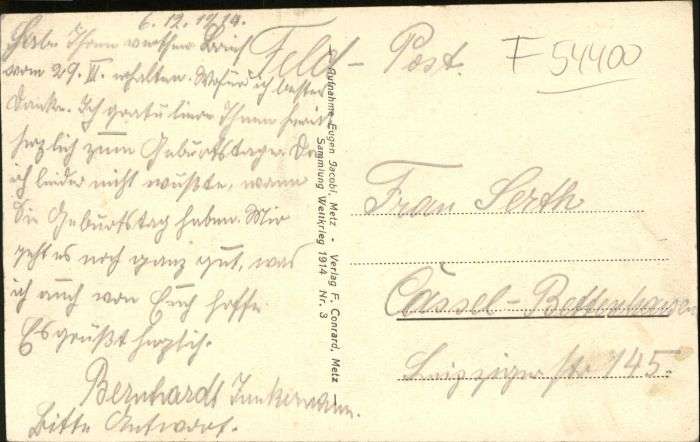 6.12.1914.
Habe Ihren werthen Brief
vom 29. III. erhalten. Wofür ich bestens
Danke. Ich gratuliere Ihnen
herzlich zum Geburtstage. Da
ich leider nicht wußte, wann
Sie Geburtstag haben. Mir
geht es noch ganz gut, was
ich auch von Euch hoffe.
Es grüßt herzlich.
Bernhardt Junkermann.
Bitte Antwort.
Aufnahme Eugen Jacobi, Metz - Verlag F. Conrard, Metz
Sammlung Weltkrieg 1914 Nr. 3
Feld-Post.
F 54400
Frau Serth
Cassel-Bettenhausen
Leipziger Str 145.